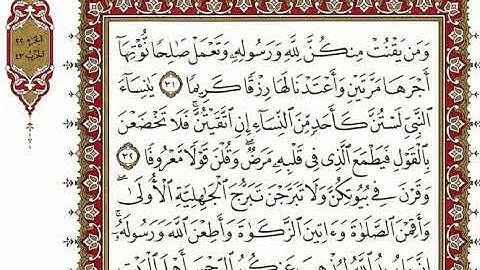 الجزء ٢٢
الحزب ٤٣
وَمَن يَقْنُتْ مِنكُنَّ لِلَّهِ وَرَسُولِهِۦ وَتَعْمَلْ صَٰلِحًا نُّؤْتِهَآ
أَجْرَهَا مَرَّتَيْنِ وَأَعْتَدْنَا لَهَا رِزْقًا كَرِيمًا ٣١ يَٰنِسَآءَ
ٱلنَّبِيِّ لَسْتُنَّ كَأَحَدٍ مِّنَ ٱلنِّسَآءِ إِنِ ٱتَّقَيْتُنَّۚ فَلَا تَخْضَعْنَ
بِٱلْقَوْلِ فَيَطْمَعَ ٱلَّذِى فِى قَلْبِهِۦ مَرَضٌ وَقُلْنَ قَوْلًا مَّعْرُوفًا ٣٢
وَقَرْنَ فِى بُيُوتِكُنَّ وَلَا تَبَرَّجْنَ تَبَرُّجَ ٱلْجَٰهِلِيَّةِ ٱلْأُولَىٰۖ
وَأَقِمْنَ ٱلصَّلَوٰةَ وَءَاتِينَ ٱلزَّكَوٰةَ وَأَطِعْنَ ٱللَّهَ وَرَسُولَهُۥٓۚ
إِنَّمَا يُرِيدُ ٱللَّهُ لِيُذْهِبَ عَنكُمُ ٱلرِّجْسَ أَهْلَ ٱلْبَيْتِ